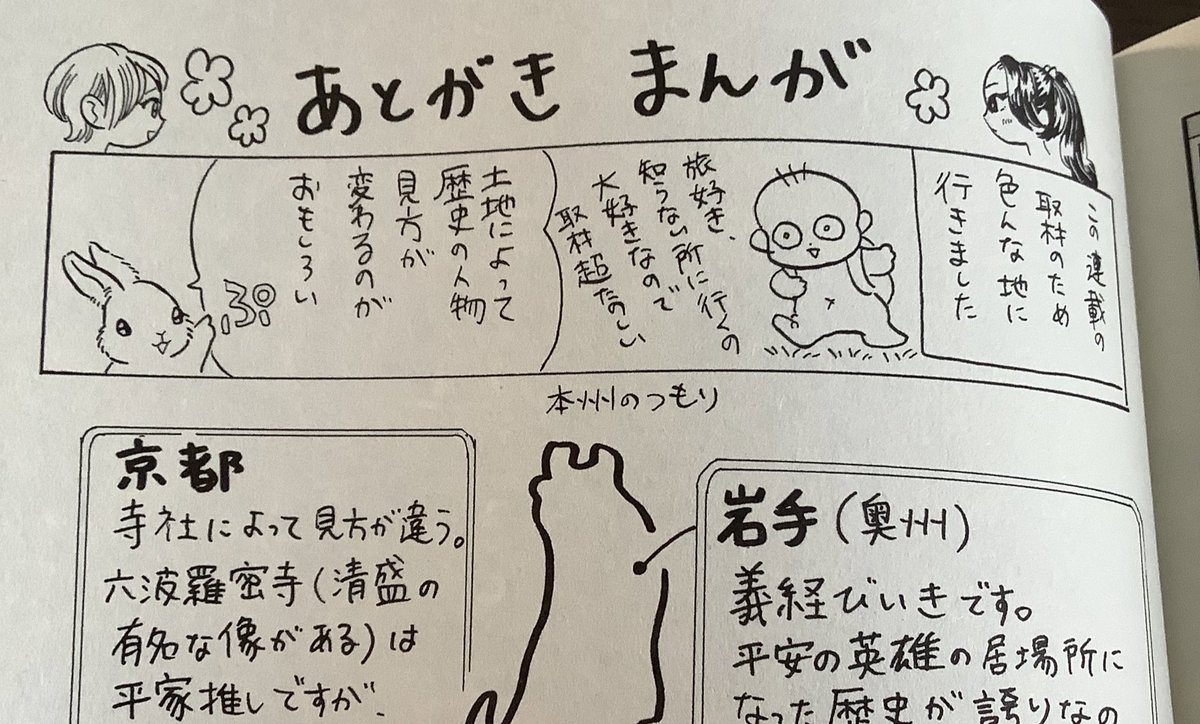 あとがき まんが
この連載の
取材のため
色んな地に
行きました
旅好き、
知らない所に行くの
大好きなので
取材超たのしい
土地によって
歴史の人物
見方が
変わるのが
おもしろい
ぷ
本州のつもり
京都
寺社によって見方が違う。
六波羅密寺(清盛の
有名な像がある)は
平家推しですが、
岩手(奥州)
義経びいきです。
平安の英雄の居場所に
なった歴史が誇りなの